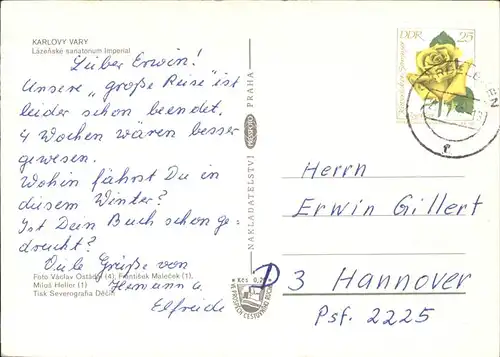 KARLOVY VARY
Lázeňské sanatorium Imperial
Lieber Erwin!
Unsere „große Reise" ist
leider schon beendet.
4 Wochen wären besser
gewesen.
Wohin fährst Du in
diesem Winter?
Ist Dein Buch schon ge-
druckt?
Viele Grüße von
Hermann u.
Elfriede
Foto Václav Ostádal (4), František Maleček (1),
Miloš Heller (1)
Tisk Severografia Děčín
NAKLADATELSTVÍ PRAHA
PRESSFOTO
Kčs 0,20
VE PROSPĚCH CESTOVNÍHO RUCHU
DDR 25
Herrn
Erwin Gillert
D 3 Hannover
Psf. 2225